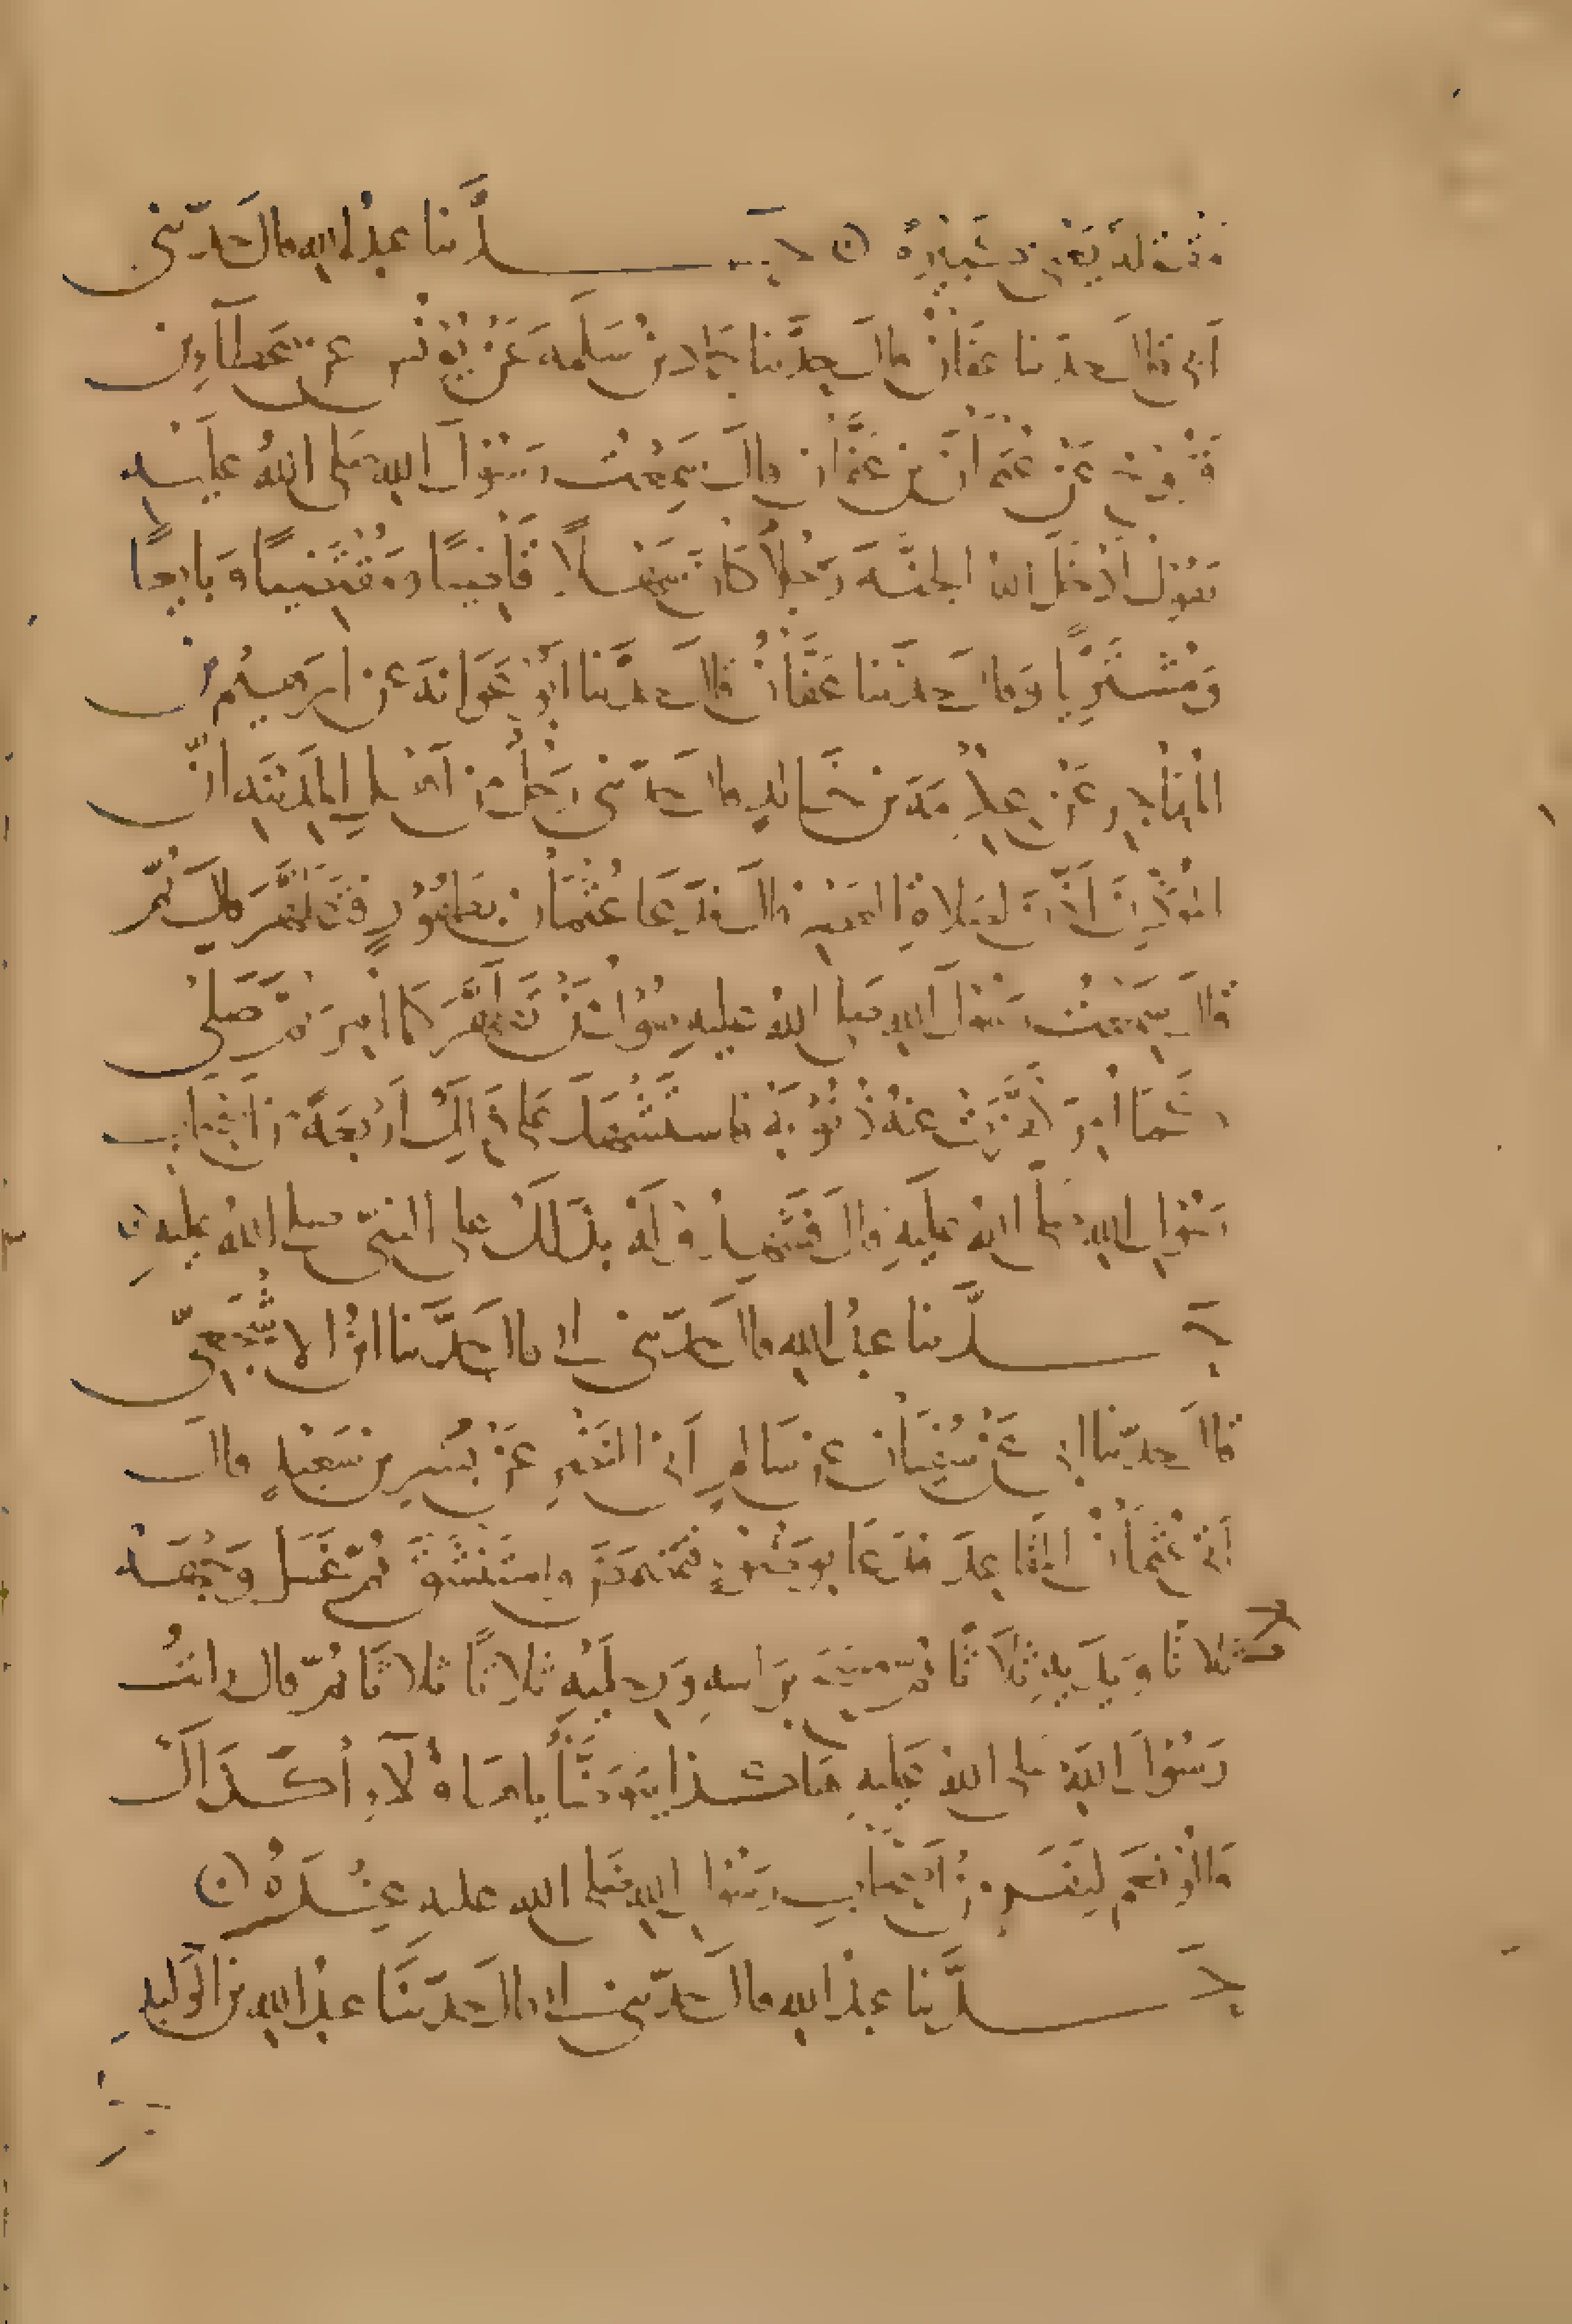 حدثنا عبد الله قال حدثني
أبي قال حدثنا عفان قال حدثنا حماد بن سلمه عن يونس عن عطاء بن
فروخ عن عثمان بن عفان قال سمعت رسول الله صلى الله عليه
يقول أدخل الله الجنة رجلا كان سهلا قاضيا ومقتضيا وبايعا
ومشتريا وقال حدثنا عفان قال حدثنا أبو عوانه عن ابرهيم بن
المهاجر عن عكرمه بن خالد قال حدثني رجل من أهل المدينه ان
المؤذن أذن لصلاة العصر قال فدعا عثمان بطهور فتطهر قال ثم
قال سمعت رسول الله صلى الله عليه يقول من تطهر كما أمر ثم صلى
كما أمر كفرت عنه ذنوبه فاستشهد على ذلك أربعة من أصحاب
رسول الله صلى الله عليه قال فشهدوا له بذلك على النبي صلى الله عليه
حدثنا عبد الله قال حدثني أبي قال حدثنا ابن الاشجعي
قال حدثنا أبي عن سفيان عن سالم أبي النضر عن بسر بن سعيد قال
أتى عثمان المقاعد فدعا بوضوء فتمضمض واستنشق ثم غسل وجهه
ثلاثا ويديه ثلاثا ثلاثا ثم مسح براسه ورجليه ثلاثا ثلاثا ثم قال رايت
رسول الله صلى الله عليه هاكذا يتوضأ يا هاؤلاء أكذاك
قالوا نعم لنفر من أصحاب رسول الله صلى الله عليه عنده
حدثنا عبد الله قال حدثني أبي قال حدثنا عبد الله بن الوليد